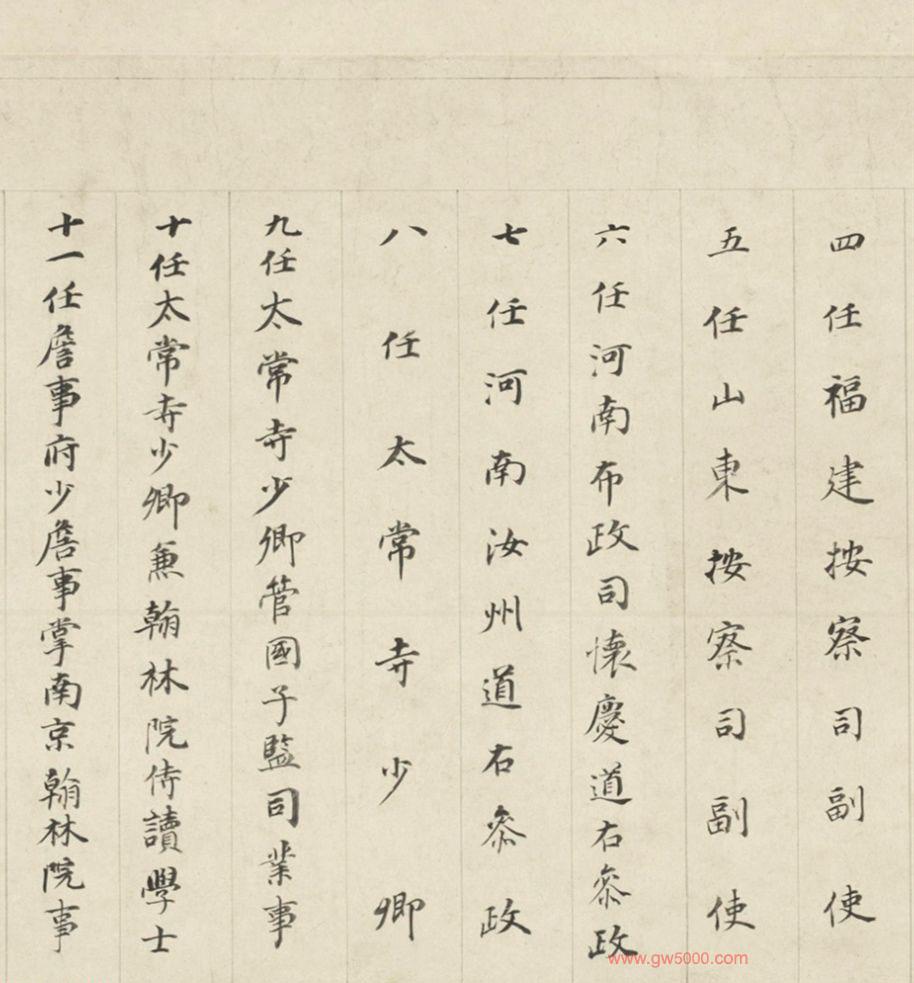 四任福建按察司副使
五任山東按察司副使
六任河南布政司懷慶道右叅政
七任河南汝州道右叅政
八任太常寺少卿
九任太常寺少卿管國子監司業事
十任太常寺少卿兼翰林院侍讀學士
十一任詹事府少詹事掌南京翰林院事
www.gw5000.com